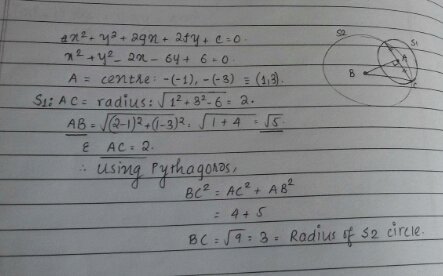 x² + y² + 2gx + 2fy + c = 0.
x² + y² - 2x - 6y + 6 = 0.
A = centre: -(-1), -(-3) ≡ (1,3).
S1: AC = radius: √1² + 3² - 6 = 2.
AB = √(2-1)² + (1-3)² = √1 + 4 = √5.
& AC = 2.
∴ Using Pythagoras,
BC² = AC² + AB²
= 4 + 5
BC = √9 = 3 = Radius of S2 circle.
S2
S1
A
B
C